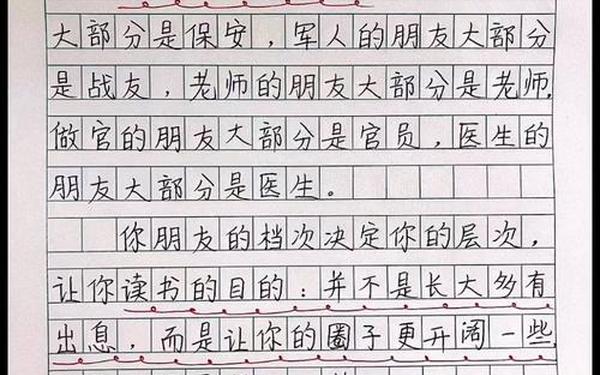 大部分是保安，军人的朋友大部分
是战友，老师的朋友大部分是老师，
做官的朋友大部分是官员，医生的
朋友大部分是医生。
你朋友的档次决定你的层次，
让你读书的目的：并不是长大多有
出息，而是让你的圈子更开阔一些